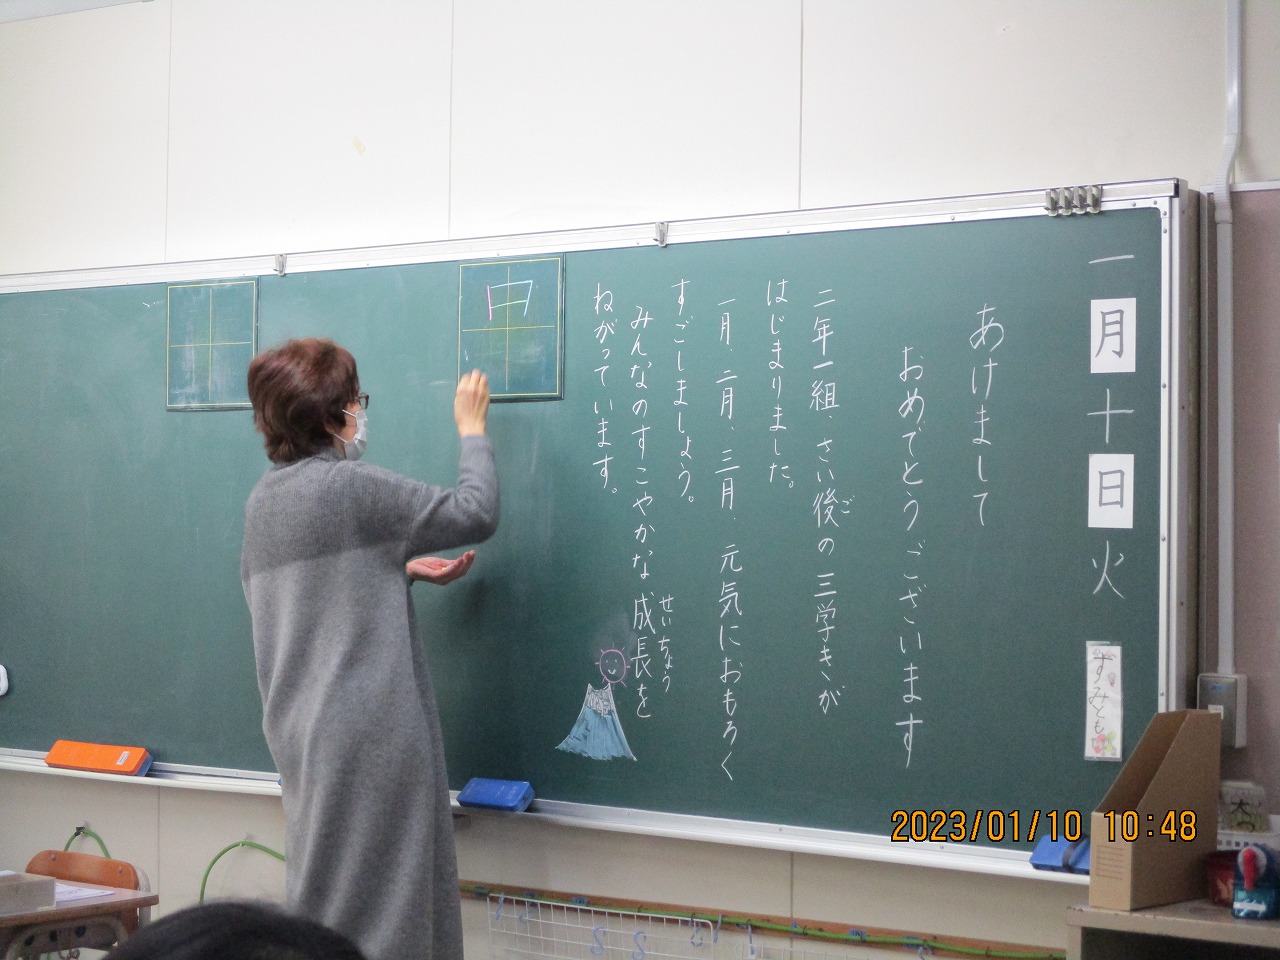 一月十日火
すみとも
あけまして
おめでとうございます
二年一組、さい後の三学きが
ご
はじまりました。
一月、二月、三月、元気におもろく
すごしましょう。
みんなのすこやかな成長を
せいちょう
ねがっています。
2023/01/10 10:48